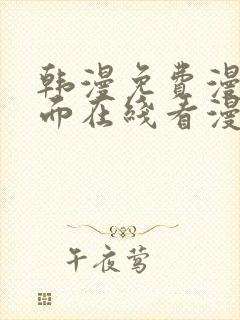 韩漫免费漫
而在线看漫
午夜莺